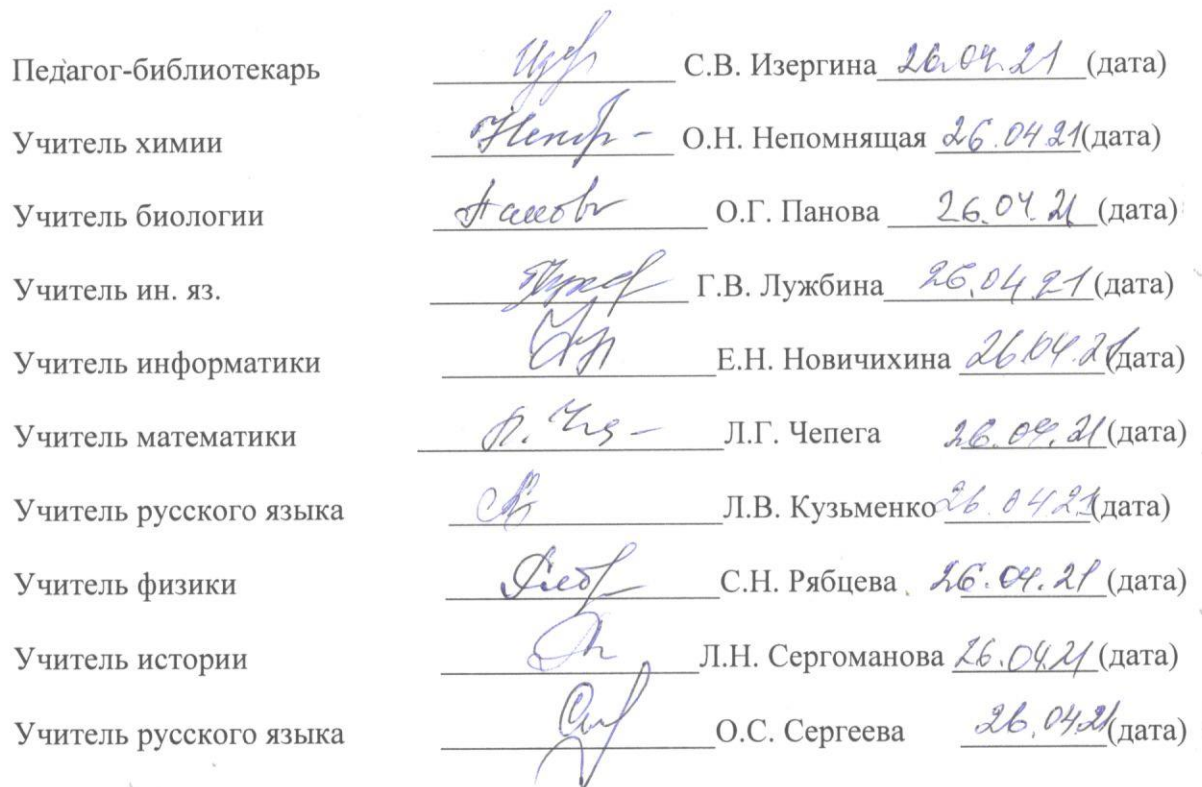 Педагог-библиотекарь С.В. Изергина 26.04.21 (дата)
Учитель химии О.Н. Непомнящая 26.04.21 (дата)
Учитель биологии О.Г. Панова 26.04.21 (дата)
Учитель ин. яз. Г.В. Лужбина 26.04.21 (дата)
Учитель информатики Е.Н. Новичихина 26.04.21 (дата)
Учитель математики Л.Г. Чепега 26.04.21 (дата)
Учитель русского языка Л.В. Кузьменко 26.04.21 (дата)
Учитель физики С.Н. Рябцева 26.04.21 (дата)
Учитель истории Л.Н. Сергоманова 26.04.21 (дата)
Учитель русского языка О.С. Сергеева 26.04.21 (дата)